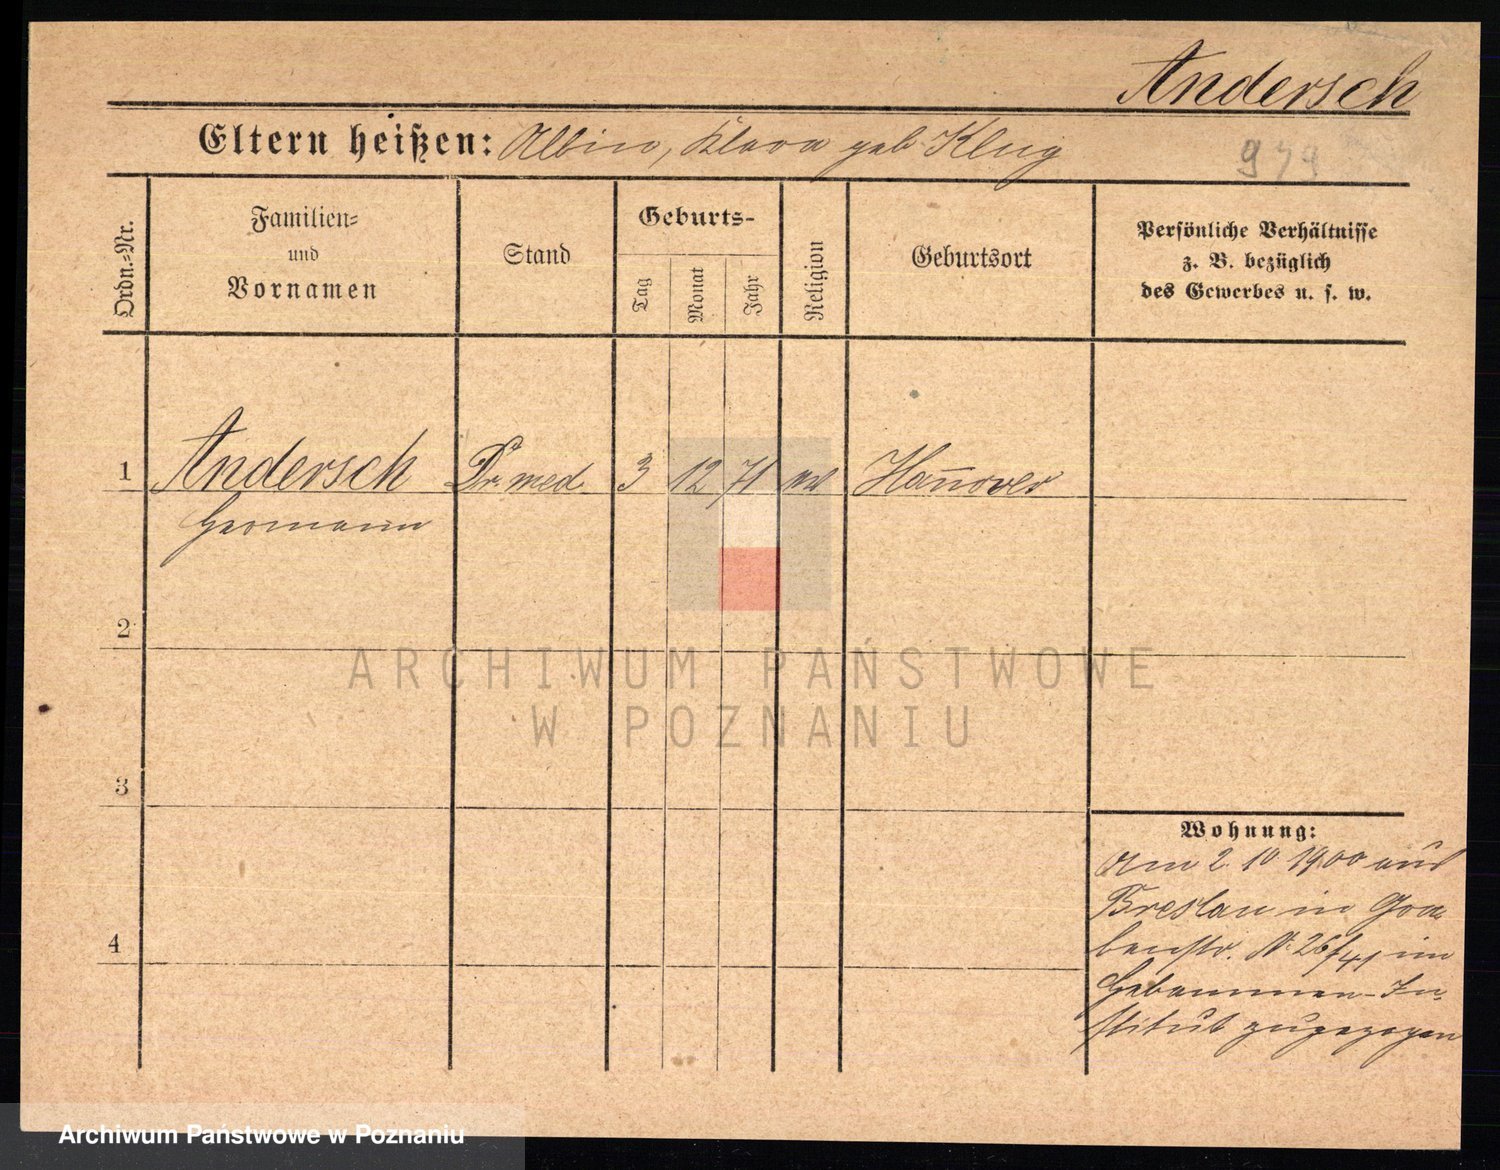 Andersch
Eltern heißen: Albin, Klara geb Klug
979
Ordn.-Nr.
Familien-
und
Vornamen
Stand
Geburts-
Tag
Monat
Jahr
Religion
Geburtsort
Persönliche Verhältnisse
z. B. bezüglich
des Gewerbes u. s. w.
1 Andersch Dr. med. 3 12 71 Hannover
Hermann
2
ARCHIWUM PAŃSTWOWE
W POZNANIU
3
Wohnung:
Am 2. 10 1900 aus
Breslau in Gra-
benstr. N. 26/41 im
Hebammen-In-
stitut zugezogen
4
Archiwum Państwowe w Poznaniu